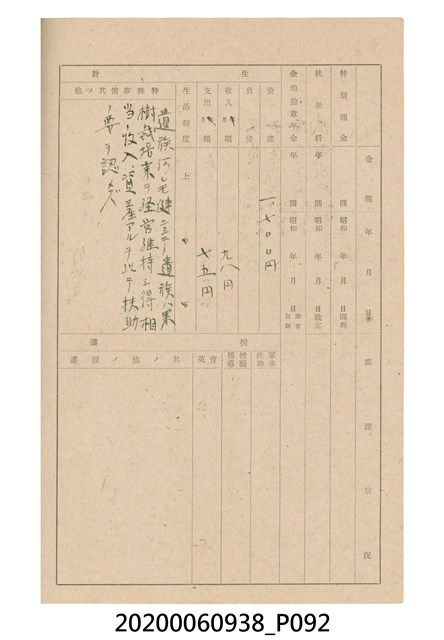 金額年月日
處理狀況
特別賜金
圓
昭和 年 月 日國庫
扶助料
年
圓
昭和 年 月 日設定
金鵄勳章年金
年
圓
昭和 年 月 日
生計
資產
一、七〇〇円
負債
收入月額
九八円
支出月額
七五円
生活程度
上
特殊事情其ノ他
遺族何レモ健ニシテ遺族ハ果
樹栽培業ヲ経営維持シ得相
当ノ收入、資産アルヲ以テ扶助
ノ要ヲ認メズ
援護
軍事扶助
授職補導
育英
其ノ他ノ援護
20200060938_P092